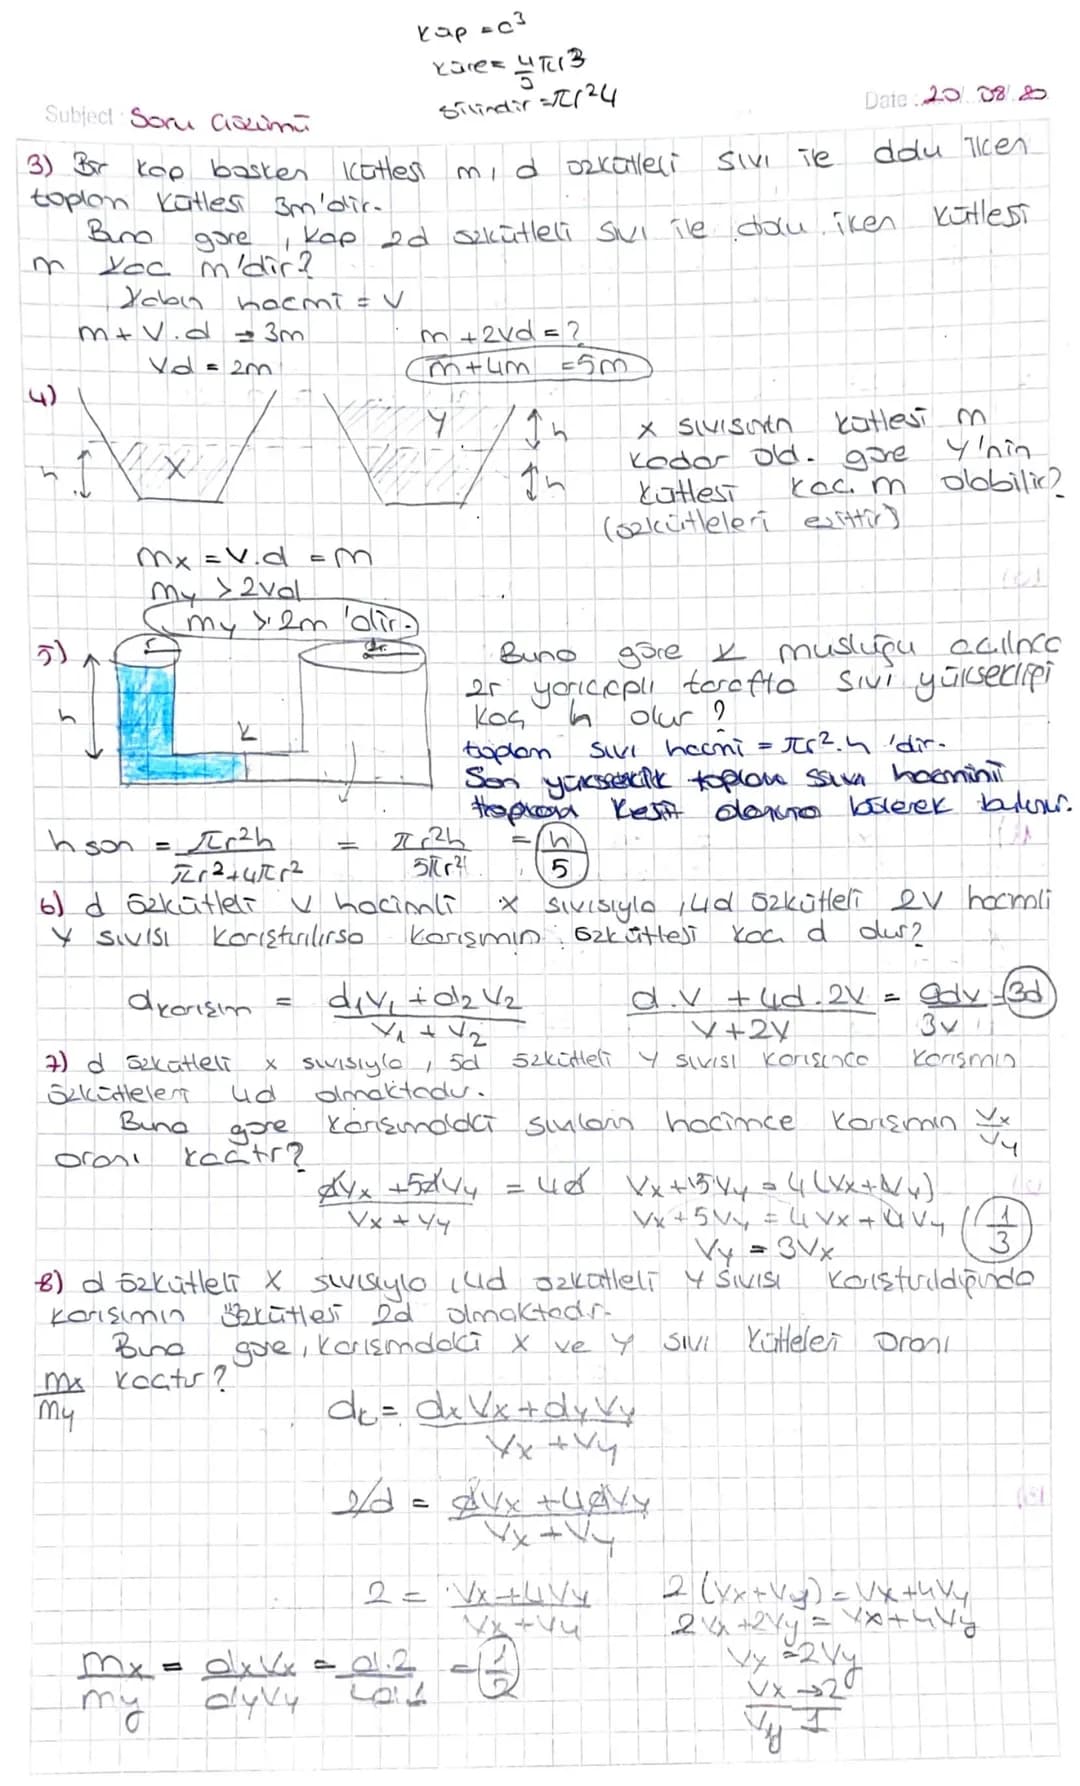 Kap = c³
Küre = 4/3 πr³
Silindir = πr²4
Subject: Soru Çözümü
Date: 20.08.20
3) Bir kap boşken kütlesi m, d özkütleli sıvı ile dolu iken
toplam kütlesi 3m'dir.
Buna göre, kap 2d özkütleli sıvı ile dolu iken kütlesi
m kaç m'dir?
Kabın hacmi = V
m + V.d = 3m
m + 2Vd = ?
Vd = 2m
m + 4m = 5m
4)
X
h
Y
h
h
x sıvısının kütlesi m
kadar old. göre Y'nin
kütlesi kaç m olabilir?
(özkütleleri eşittir)
mx = V.d = m
my > 2Vd
my > 2m 'dir.
5)
r
2r
h
K
Buna göre K musluğu açılınca
2r yarıçaplı tarafta sıvı yüksekliği
kaç h olur?
toplam sıvı hacmi = πr².h 'dir.
Son yükseklik toplam sıvı hacmini
toplam kesit alanına bölerek bulunur.
h son = πr²h / πr²+4πr² = πr²h / 5πr² = h/5
6) d özkütleli V hacimli x sıvısıyla, 4d özkütleli 2V hacimli
Y sıvısı karıştırılırsa karışımın özkütlesi kaç d dur?
dkarışım = d₁V₁ + d₂V₂ / V₁ + V₂
d.V + 4d.2V / V+2V = 9dV / 3V = 3d
7) d özkütleli x sıvısıyla, 5d özkütleli Y sıvısı karışınca karışımın
özkütleleri 4d olmaktadır.
Buna göre karışımdaki sıvıların hacimce karışımın Vx/Vy
oranı kaçtır?
dVx + 5dVy / Vx + Vy = 4d
Vx + 5Vy = 4(Vx + Vy)
Vx + 5Vy = 4Vx + 4Vy
1/3
Vy = 3Vx
8) d özkütleli X sıvısıyla, 4d özkütleli Y sıvısı karıştırıldığında
karışımın özkütlesi 2d olmaktadır.
Buna göre, karışımdaki X ve Y sıvı kütleleri oranı
mx/my kaçtır?
dk = dxVx + dyVy / Vx + Vy
2d = dVx + 4dVy / Vx + Vy
2 = Vx + 4Vy / Vx + Vy
2(Vx+Vy) = Vx + 4Vy
2Vx + 2Vy = Vx + 4Vy
Vx = 2Vy
Vx → 2
Vy 1
mx/my = dxVx / dyVy = d.2 / 4d.1 = 1/2